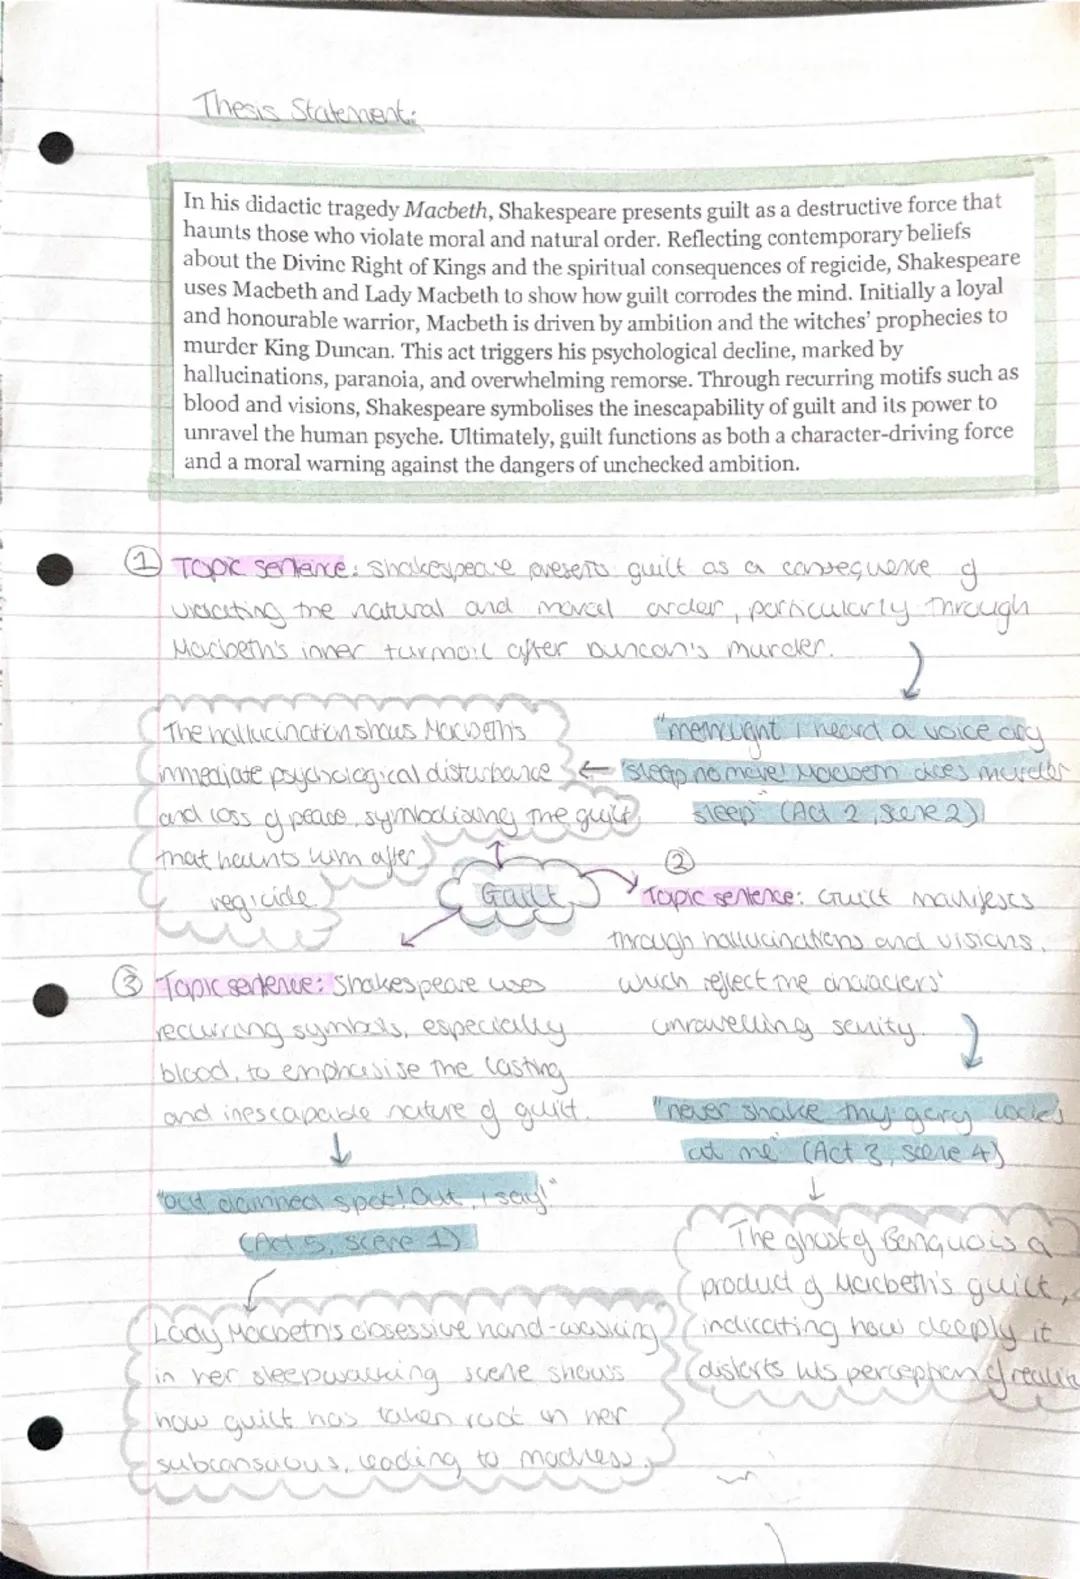 Thesis Statement:
In his didactic tragedy Macbeth, Shakespeare presents guilt as a destructive force that
haunts those who violate moral and natural order. Reflecting contemporary beliefs
about the Divine Right of Kings and the spiritual consequences of regicide, Shakespeare
uses Macbeth and Lady Macbeth to show how guilt corrodes the mind. Initially a loyal
and honourable warrior, Macbeth is driven by ambition and the witches' prophecies to
murder King Duncan. This act triggers his psychological decline, marked by
hallucinations, paranoia, and overwhelming remorse. Through recurring motifs such as
blood and visions, Shakespeare symbolises the inescapability of guilt and its power to
unravel the human psyche. Ultimately, guilt functions as both a character-driving force
and a moral warning against the dangers of unchecked ambition.
① Topic sentence: Shakespeare presents guilt as a consequence of
violating the natural and moral order, particularly through
Macbeth's inner turmoil after Duncan's murder.
"methought I heard a voice cry
'sleep no more! Macbeth does murder
sleep" (Act 2, Scene 2)
The hallucination shows Macbeth's
immediate psychological disturbance
and loss of peace, symbolising the guilt
that haunts him after
regicide
Guilt
②
Topic sentence: Guilt manifests
through hallucinations and visions,
which reflect the characters'
unravelling sanity.
"never shake thy gory locks
at me" (Act 3, scene 4)
The ghost of Banquo is a
product of Macbeth's guilt,
indicating how deeply it
distorts his perception of reality
③ Topic sentence: Shakespeare uses
recurring symbols, especially
blood, to emphasise the lasting
and inescapable nature of guilt.
"out damned spot! Out, I say!"
(Act 5, scene 1)
Lady Macbeth's obsessive hand-washing
in her sleepwalking scene shows
how guilt has taken root in her
subconscious, leading to madness.